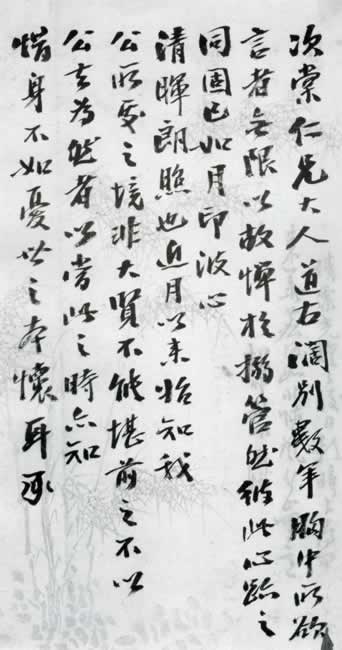 次棠仁兄大人道右阔别数年胸中所欲
言者無限以故惮於搦管然彼此心跡之
同固已如月印波心
清暉朗照也近月以来始知我
公所受之境非大賢不能堪前之不以
公去為然者以當此之時亦知
惜身不如憂以之本懷耳承